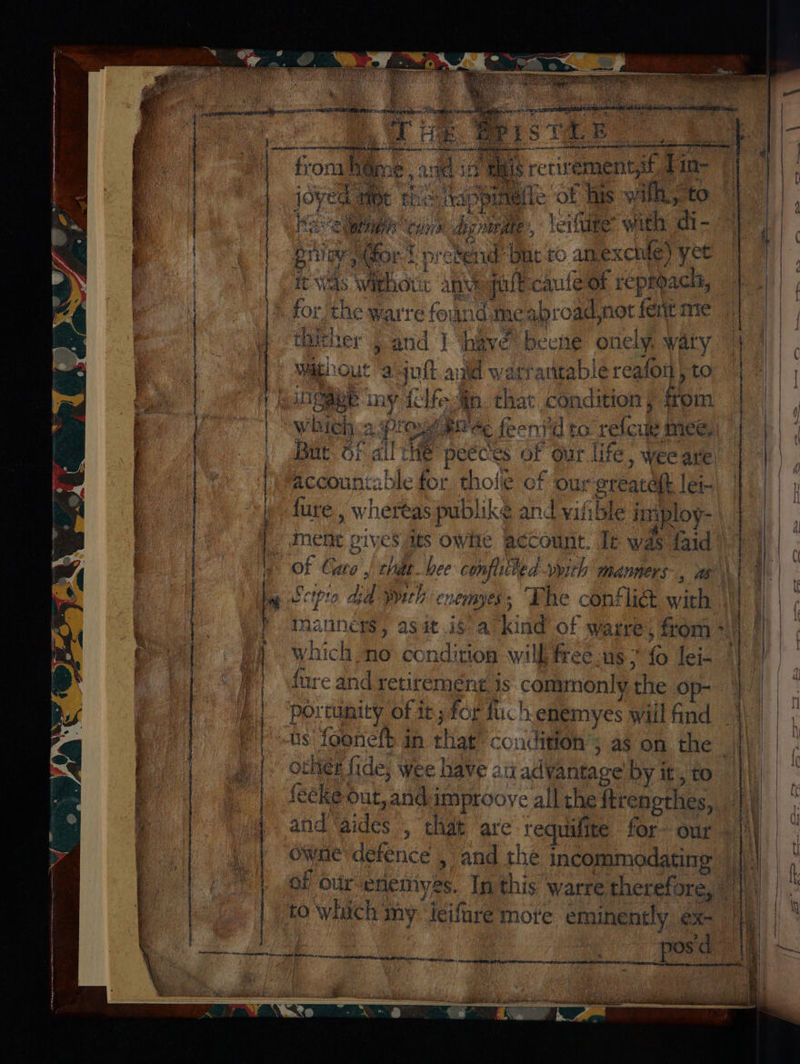 THE EPISTLE
from home, and in this retirement, if I in-
joyed not the happinesse of his wish, to
have otium cum dignitate, leisure with di-
gnity, (for I pretend but to an excuse) yet
it was without any just cause of reproach,
for the warre found me abroad, not sent me
thither, and I have beene onely wary
without a just and warrantable reason, to
ingage my selfe in that condition, from
which a seem'd to rescue mee.
But of all the peeces of our life, wee are
accountable for those of our greatest lei-
sure, whereas publike and visible imploy-
ment gives its owne account. It was said
of Cato, that hee conflicted with manners, as
Scipio did with enemyes; The conflict with
manners, as it is a kind of warre, from
which no condition will free us, so lei-
sure and retirement is commonly the op-
portunity of it; for such enemyes will find
us soonest in that condition; as on the
other side, wee have an advantage by it, to
seeke out, and improove all the strengthes,
and aides, that are requisite for our
owne defence, and the incommodating
of our enemyes. In this warre therefore,
to which my leisure more eminently ex-
pos'd